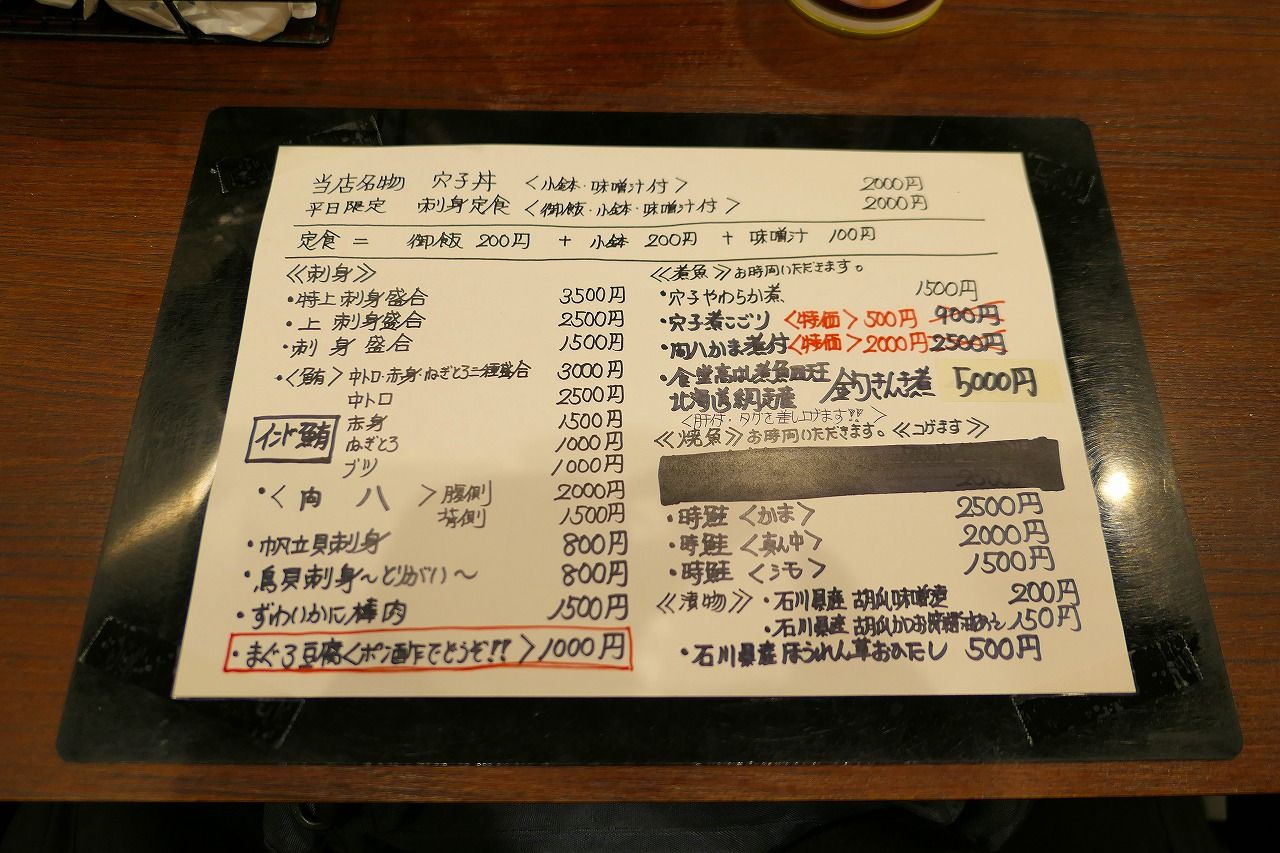 当店名物 穴子丼 <小鉢・味噌汁付> 2000円
平日限定 刺身定食 <御飯・小鉢・味噌汁付> 2000円
定食 = 御飯 200円 + 小鉢 200円 + 味噌汁 100円
≪刺身≫
・特上刺身盛合 3500円
・上 刺身盛合 2500円
・刺身盛合 1500円
・<鮪> 中トロ・赤身・ねぎとろ三種盛合 3000円
中トロ 2500円
インド鮪
赤身 1500円
ねぎとろ 1000円
ブツ 1000円
・<向八> 腹側 2000円
背側 1500円
・帆立貝刺身 800円
・鳥貝刺身〜とりがい〜 800円
・ずわいかに棒肉 1500円
・まぐろ豆腐<ポン酢でどうぞ!!> 1000円
≪煮魚≫お時間いただきます。
・穴子やわらか煮 1500円
・穴子煮こごり <特価> 500円 900円
・向八かま煮付 <特価> 2000円 2500円
・食堂高はし煮魚四天王
北海道網走産 釣きんき煮 5000円
<肝付・タグを差し上げます!!>
≪焼魚≫お時間いただきます。≪コゲます≫
・時鮭 <かま> 2500円
・時鮭 <真ん中> 2000円
・時鮭 <シモ> 1500円
≪漬物≫ ・石川県産 胡瓜味噌漬 200円
・石川県産 胡瓜かつお 150円
・石川県産 ほうれん草おひたし 500円